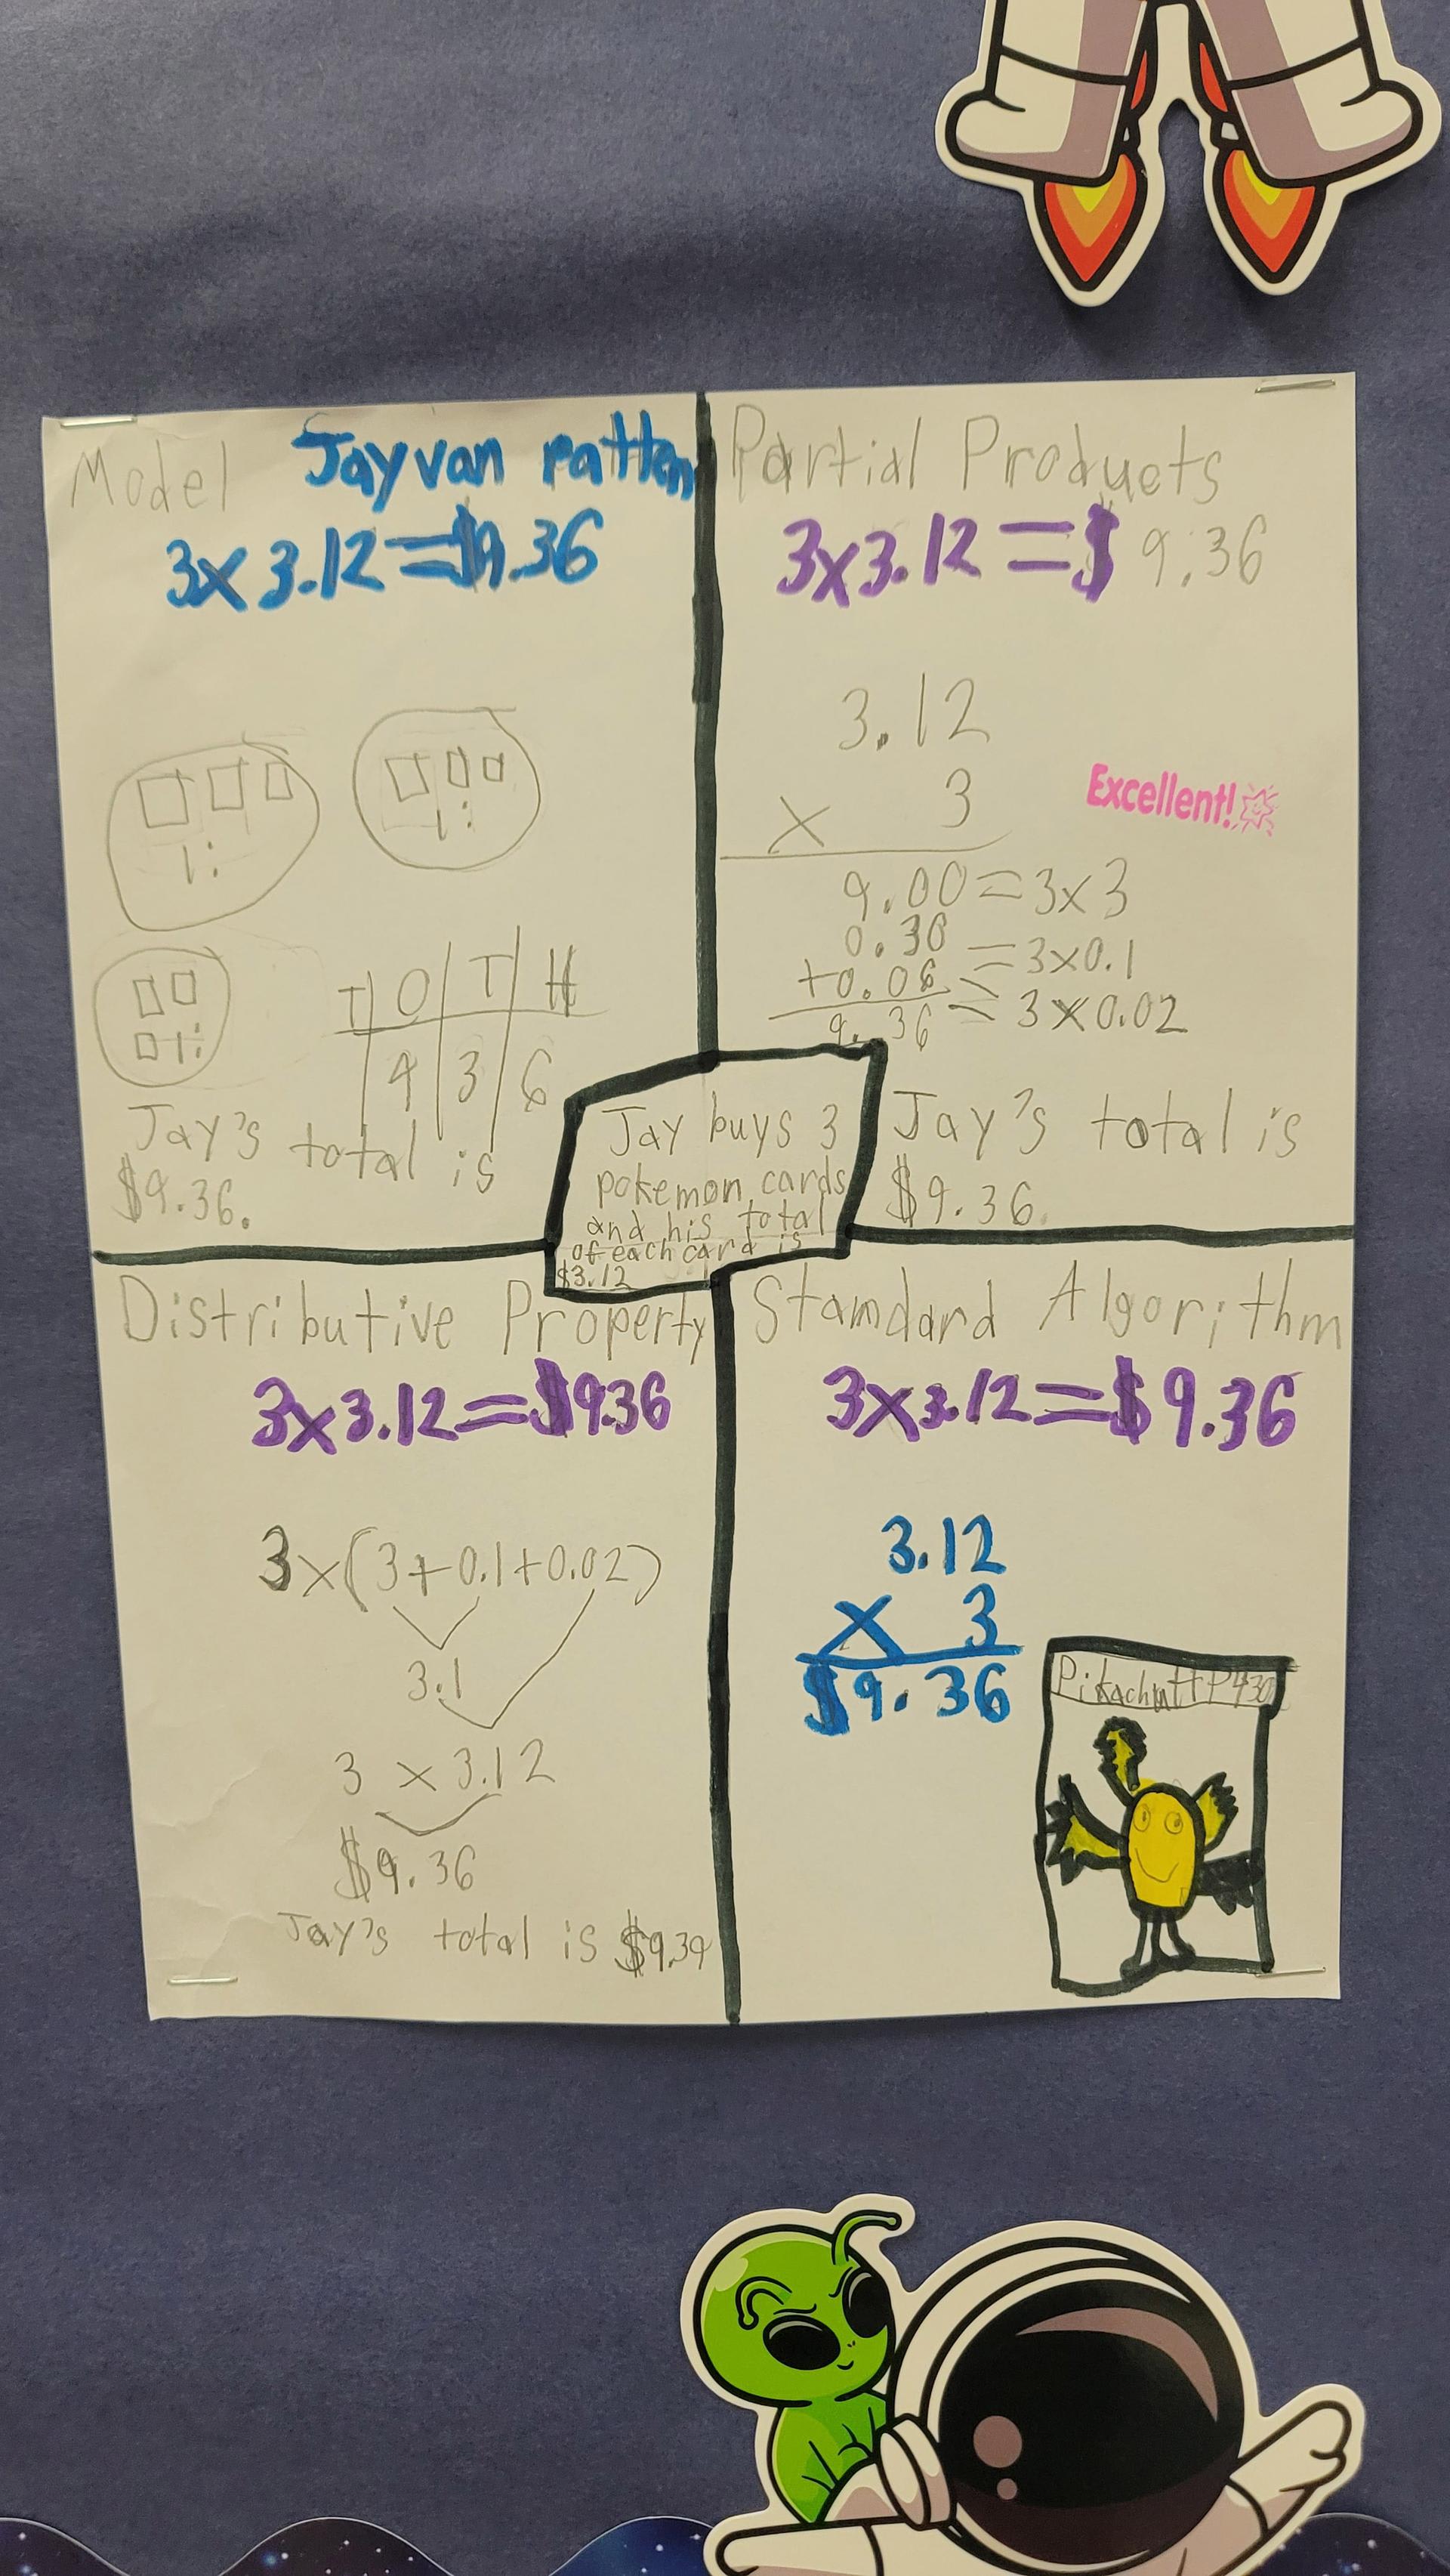 Model Jay van patten
3x3.12=$9.36
T O T H
9 3 6
Jay's total is
$9.36.
Partial Products
3x3.12=$9.36
3.12
x 3
Excellent!
9.00=3x3
0.30=3x0.1
+0.06=3x0.02
9.36
Jay's total is
$9.36.
Jay buys 3
pokemon cards
and his total
of each card is
$3.12
Distributive Property
3x3.12=$9.36
3x(3+0.1+0.02)
3.1
3 x 3.12
$9.36
Jay's total is $9.39
Stamdard Algorithm
3x3.12=$9.36
3.12
x 3
$9.36